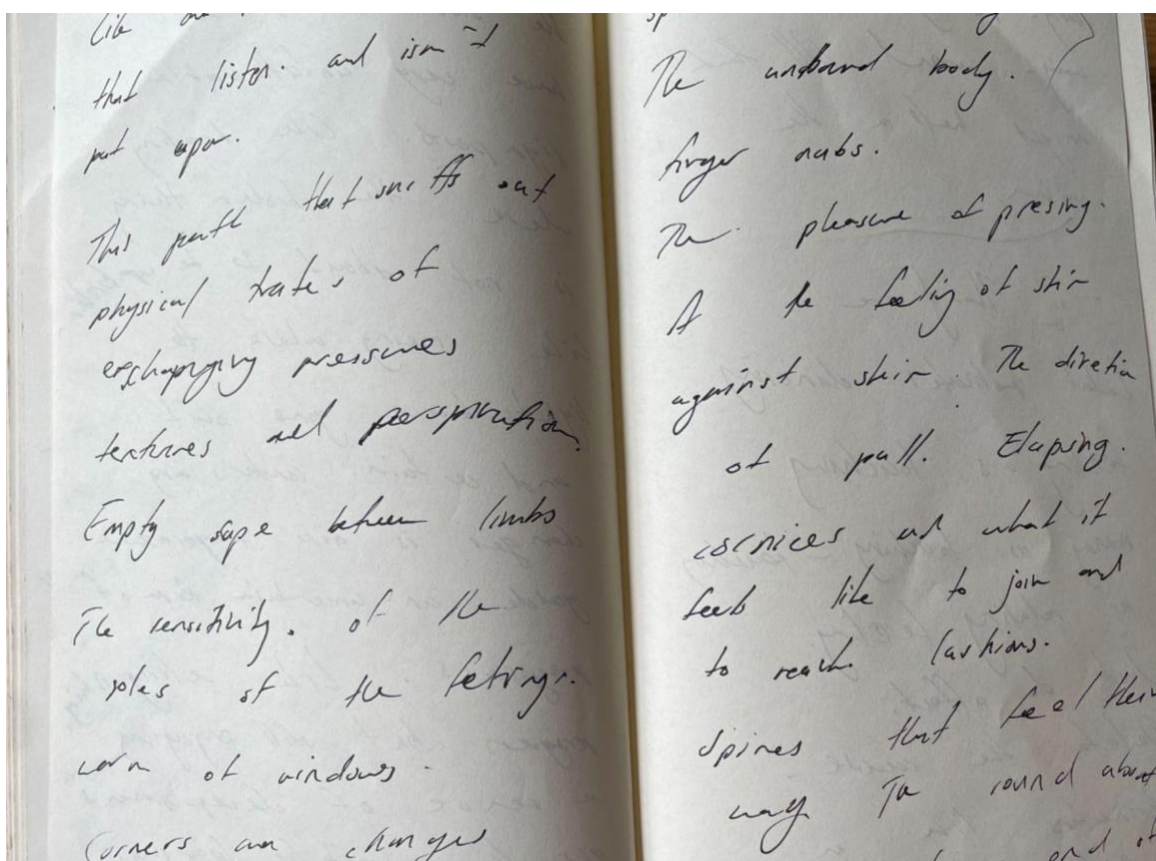 that listen. and isn't
put upon.
This path that sniffs out
physical trates of
exchanging pressures
textures and perspiration.
Empty sape between limbs
The sensitivity. of the
soles of the
warm of windows.
Corners can changes
The unbound body.
finger nubs.
The pleasure of presing.
A the feeling of skin
against skin. The diretia
of pull. Elapsing.
cornices and what it
feels like to join and
to reach. lashions.
Spines that feel their
way. The round about